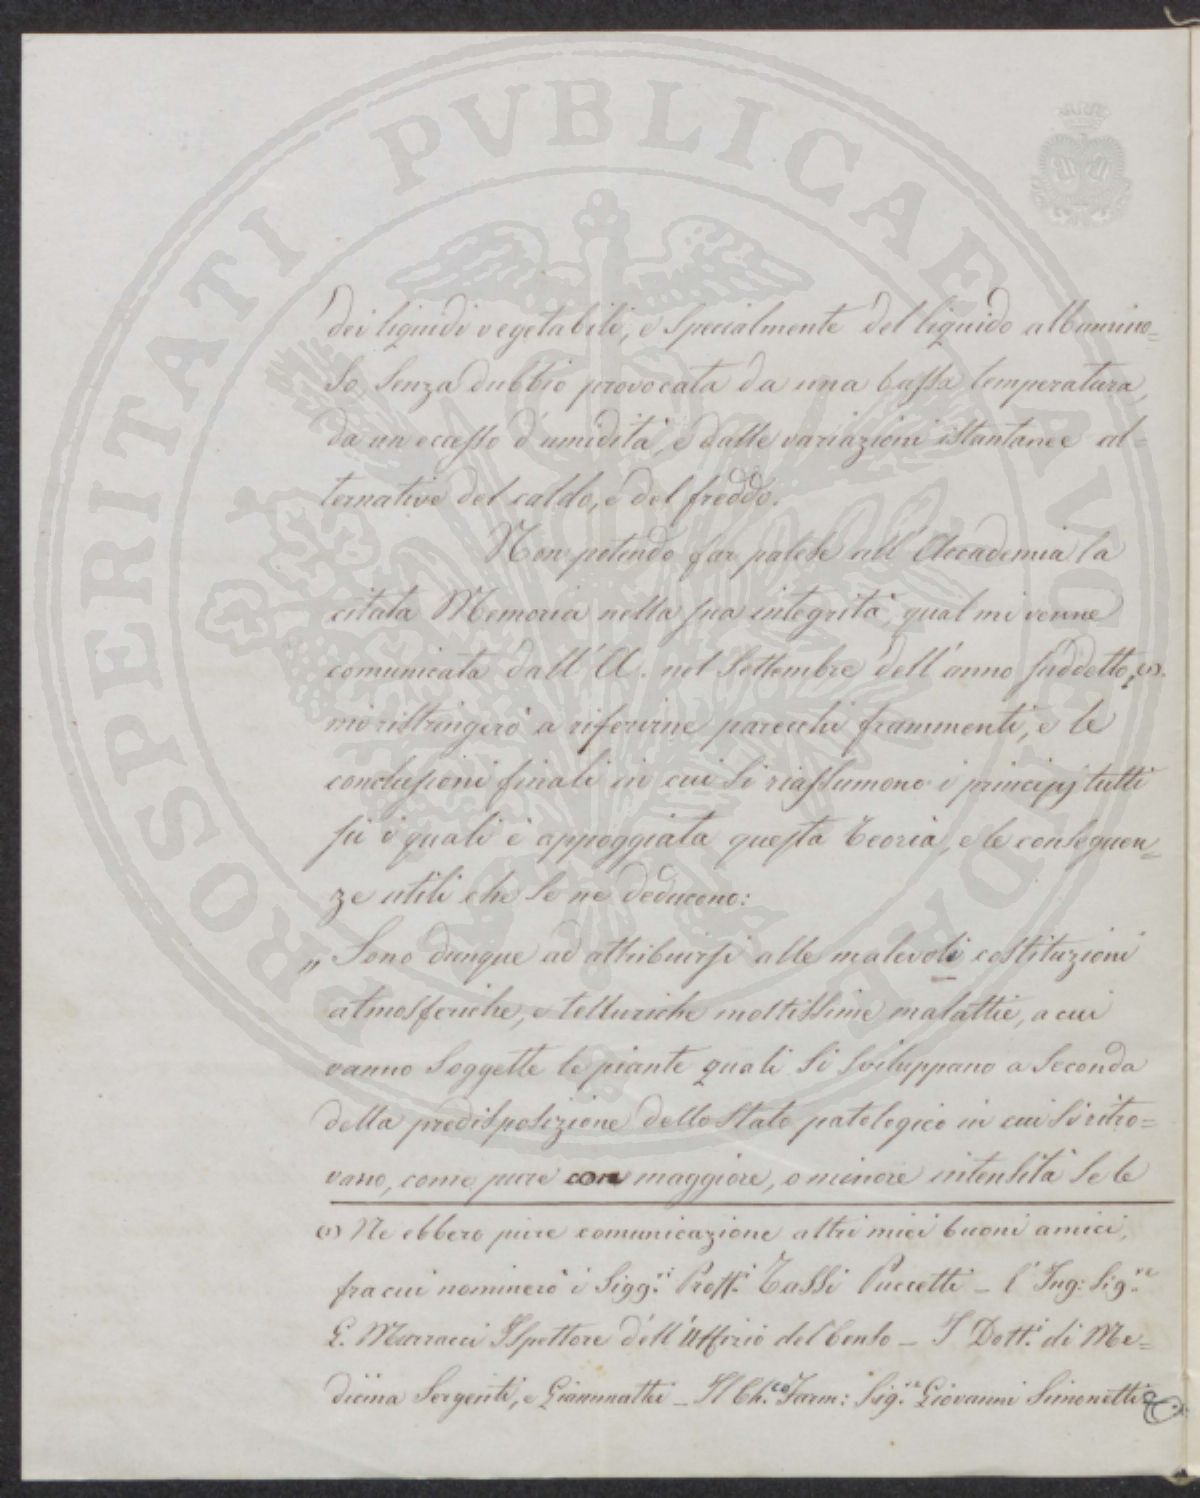 PROSPERITATI PVBLICAE AVGENDAE
dei liquidi vegetabili, e specialmente del liquido albumino=
so, senza dubbio provocata da una bassa temperatura,
da un eccesso d'umidità, e dalle variazioni istantanee al=
ternative del caldo, e del freddo.
Non potendo far palese all'Accademia la
citata Memoria nella sua integrità, qual mi venne
comunicata dall'A. nel Settembre dell'anno suddetto (1).
mi ristringerò a riferirne parecchi frammenti, e le
conclusioni finali in cui si riassumono i principj tutti
su i quali è appoggiata questa teoria, e le conseguen=
ze utili che se ne deducono:
„ Sono dunque ad attribuirsi alle malevoli costituzioni
atmosferiche, e telluriche moltissime malattie, a cui
vanno soggette le piante quali si sviluppano a seconda
della predisposizione dello stato patologico in cui si ritro=
vano, come pure con maggiore, o minore intensità se le
(1) Ne ebbero pure comunicazione altri miei buoni amici,
fra cui nominerò i Sigg.ri Proff.i Tassi Puccetti _ l'Ing: Sig.re
G. Marracci Ispettore dell'Uffizio del Censo _ I Dott.i di Me=
dicina Sergenti, e Giammattei _ Il Ch.co Farm: Sig.re Giovanni Simonetti